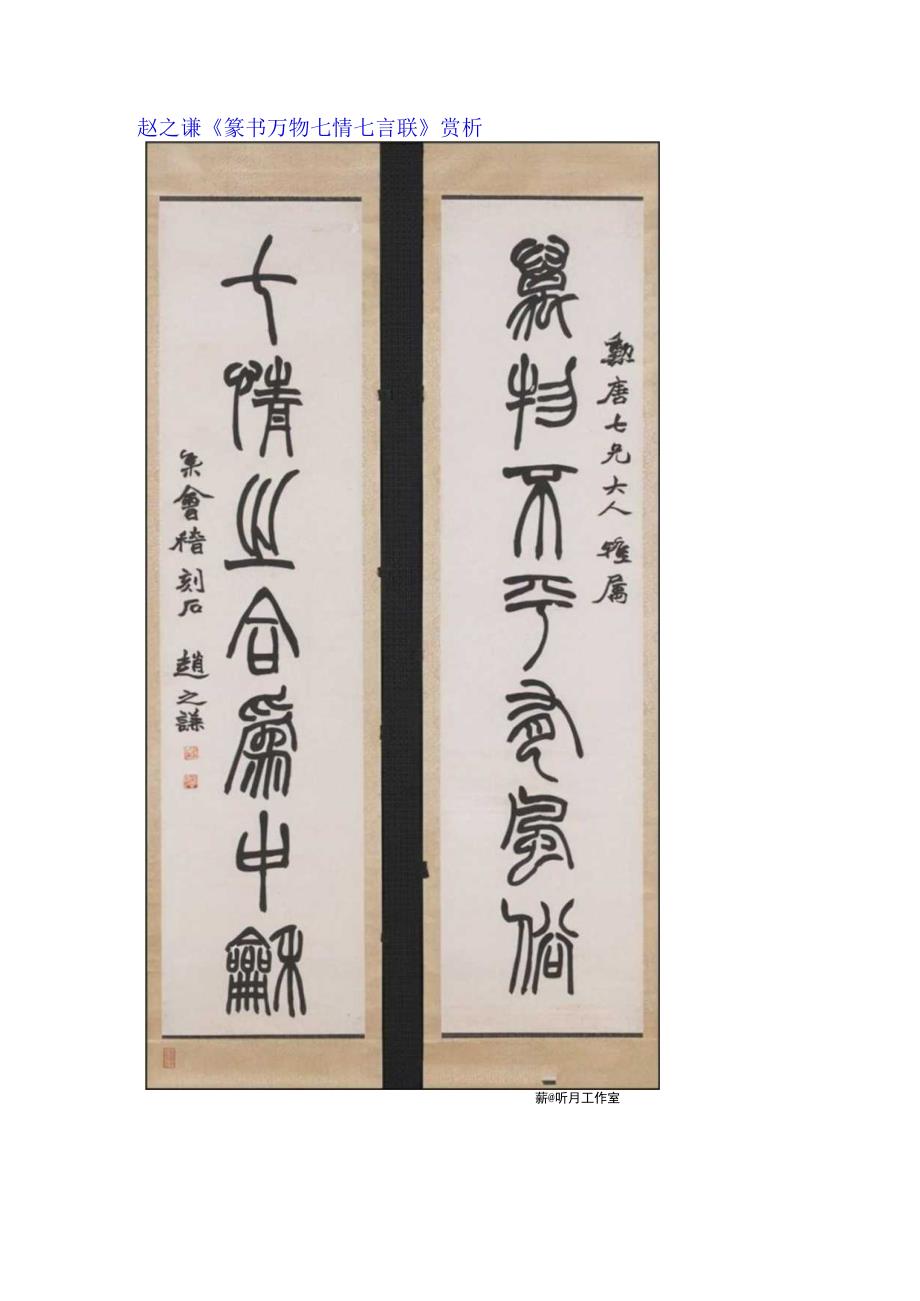 赵之谦《篆书万物七情七言联》赏析
勲唐七兄大人雅属
萬物不平有風俗
七情之合為中龢
集會稽刻石 趙之謙
薪@听月工作室